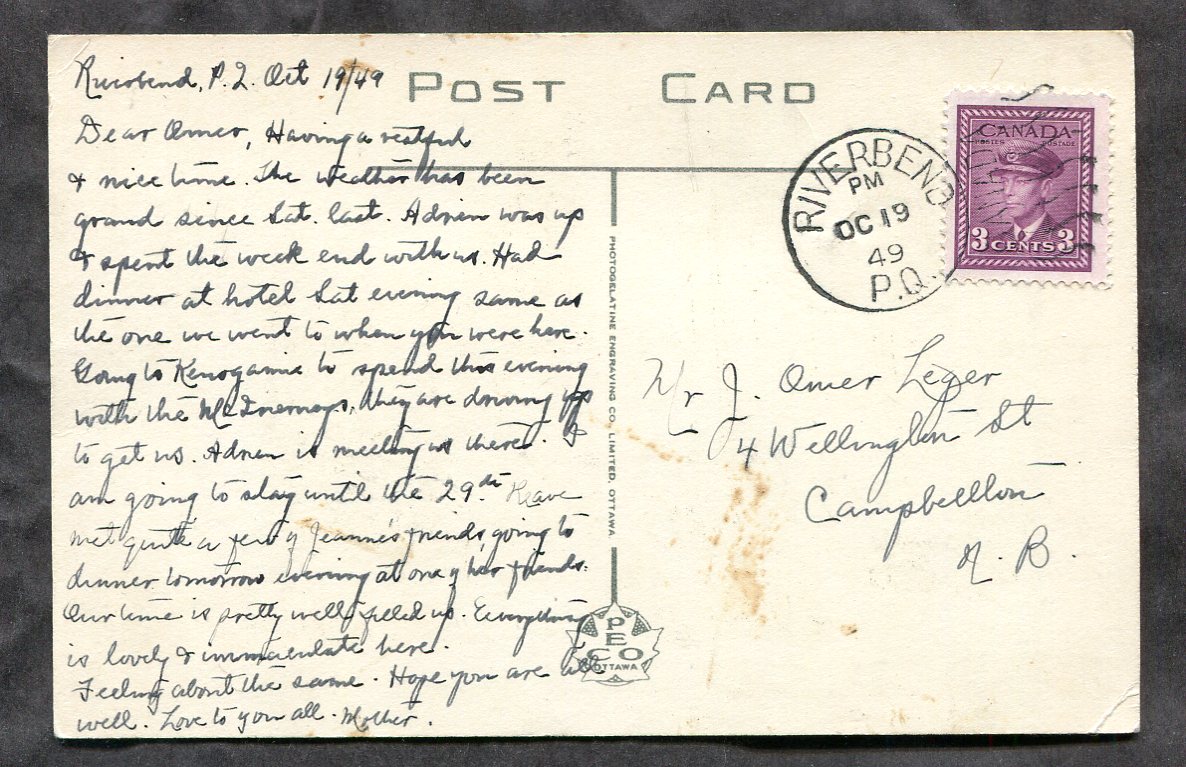 Riverbend, P.Q. Oct 19/49
POST CARD
Dear Omer, Having a restful
& nice time. The weather has been
grand since Sat. last. Adrien was up
& spent the week end with us. Had
dinner at hotel Sat evening same as
the one we went to when you were here.
Going to Kenogamie to spend this evening
with the McInerneys, they are driving up
to get us. Adrien is meeting us there. I
am going to stay until the 29.th Have
met quite a few of Jeanne's friends, going to
dinner tomorrow evening at one of her friends.
Our time is pretty well filled up. Everything
is lovely & immaculate here.
Feeling about the same. Hope you are all
well. Love to you all. Mother.
PHOTOGELATINE ENGRAVING CO. LIMITED. OTTAWA
PECO
OTTAWA
RIVERBEND
PM
OC 19
49
P.Q.
CANADA
POSTES POSTAGE
3 CENTS 3
Mr J. Omer Leger
4 Wellington St
Campbellton
N. B.